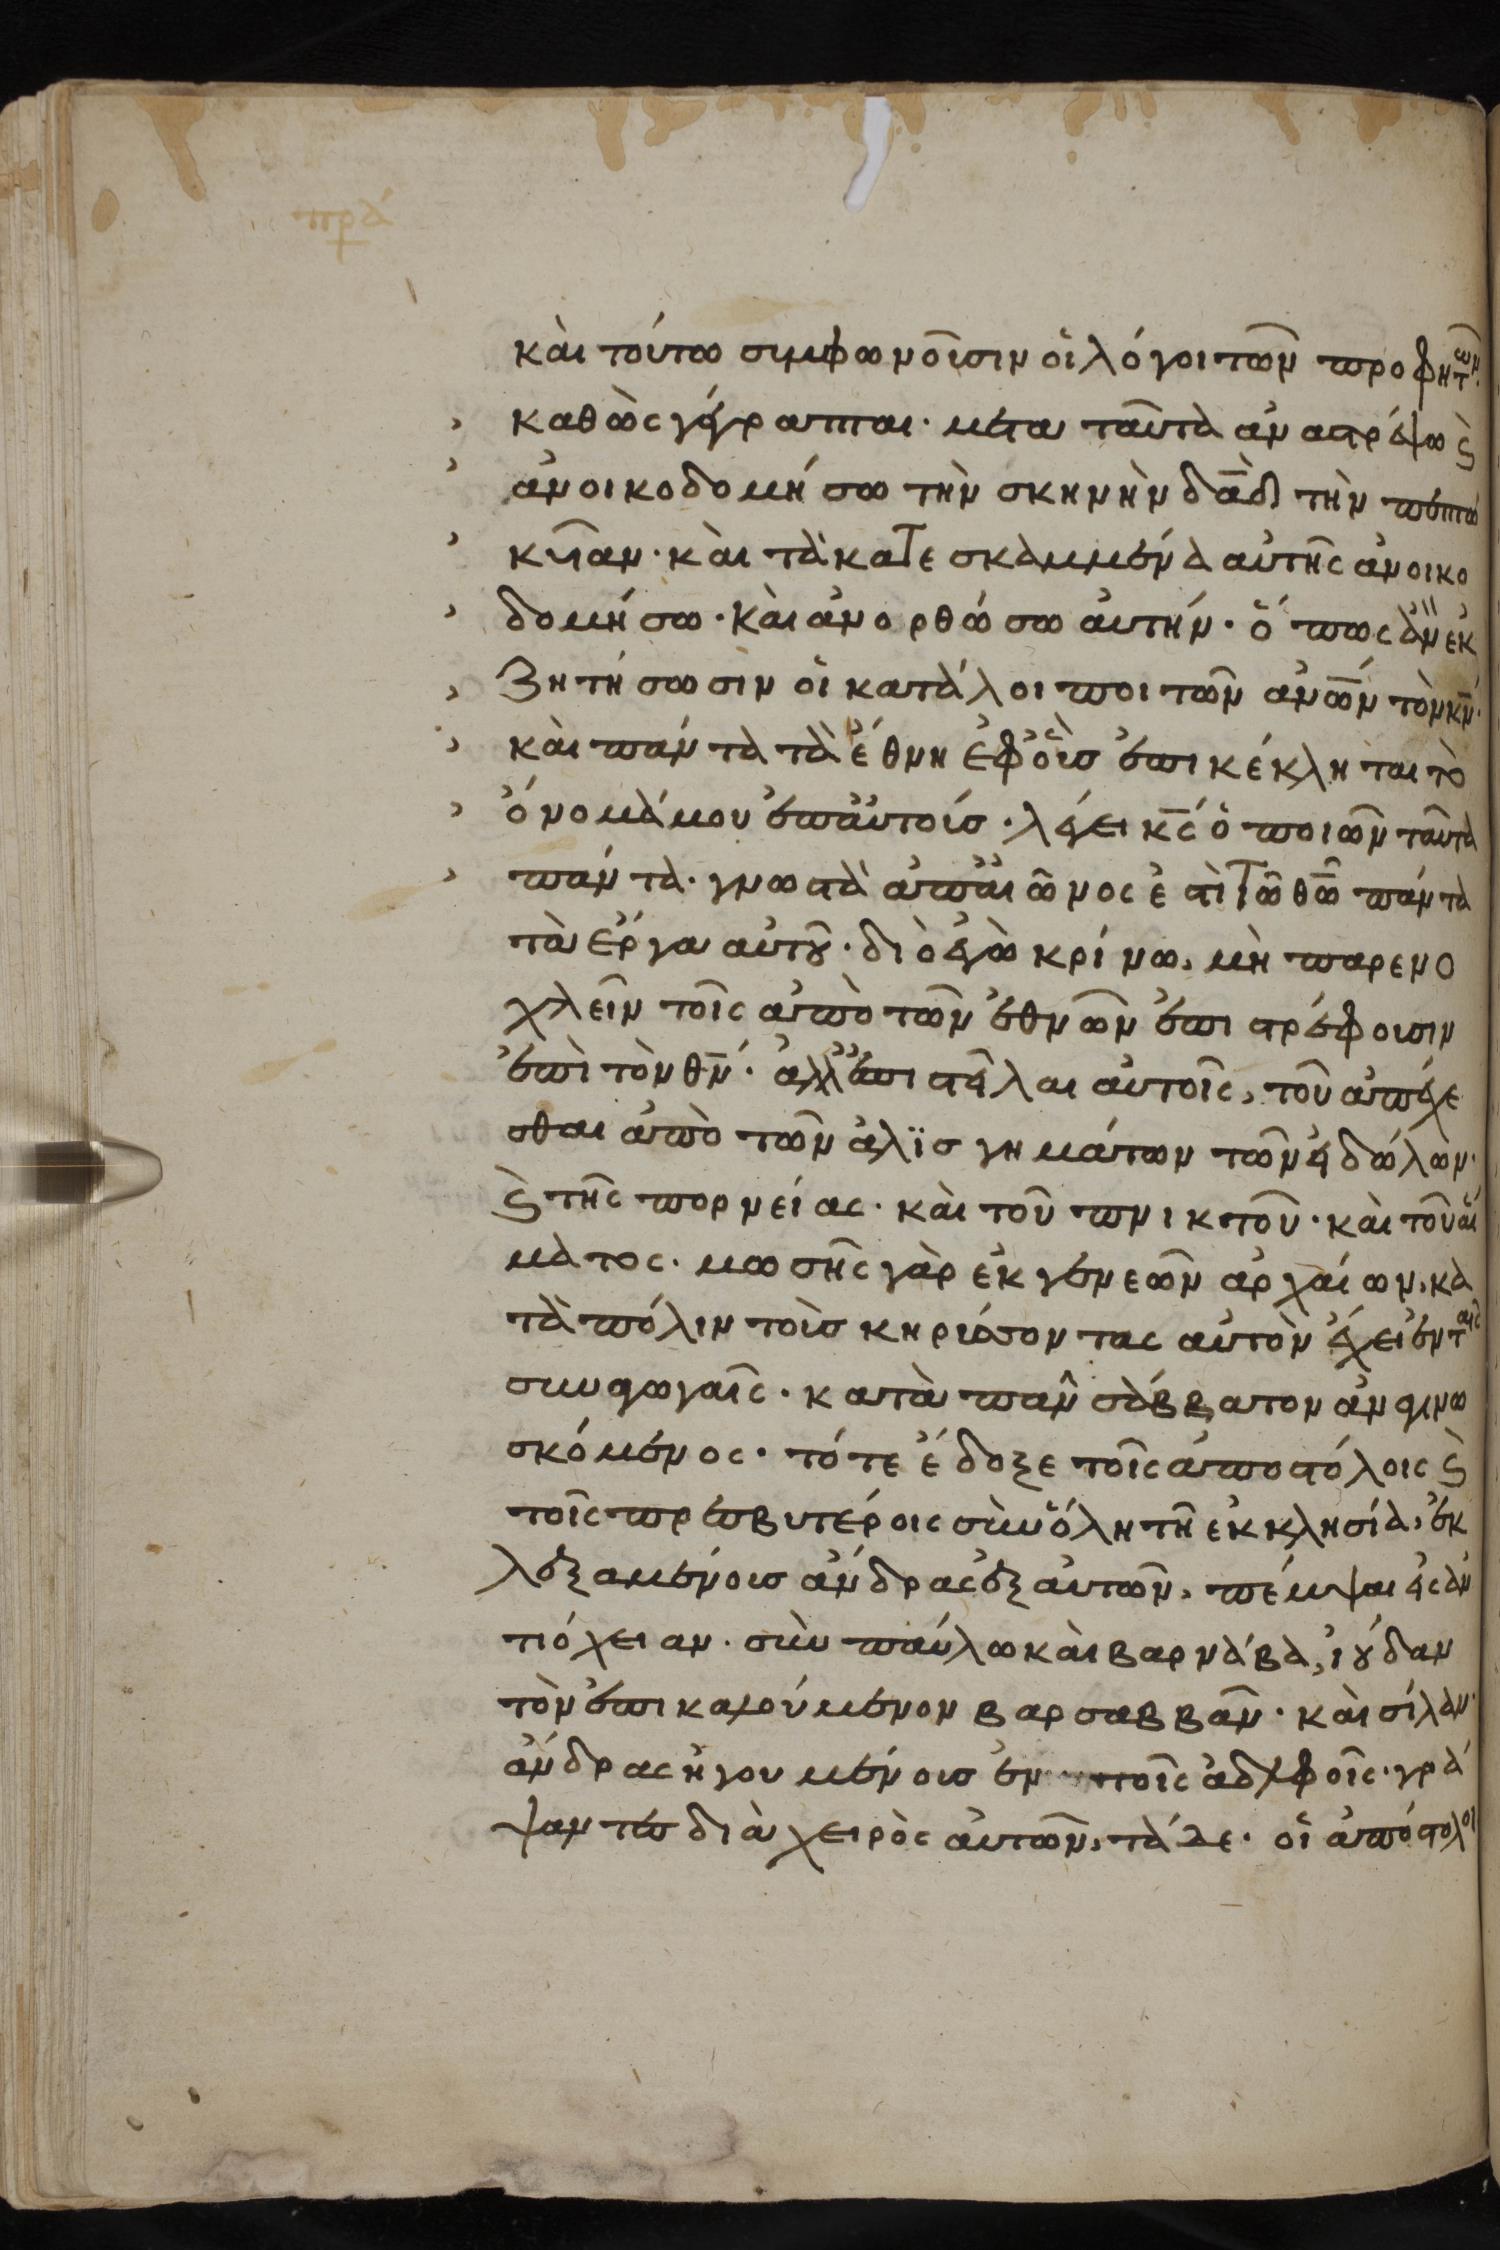 πρα
καὶ τούτω συμφωνοῦσιν οἱ λόγοι τῶν προφητῶν·
καθὼς γέγραπται· μετα ταῦτα ἀναστρέψω ϗ
ἀνοικοδομήσω τὴν σκηνὴν δᾱδ τὴν πεπτω
κυῖαν· καὶ τὰ κατεσκαμμένα αὐτῆς ἀνοικο
δομήσω· καὶ ἀνορθώσω αὐτήν· ὅπως ἂν ἐκ
ζητήσωσιν οἱ κατάλοιποι τῶν ἀνω̅ν τὸν κ̅ν·
καὶ πάντα τὰ ἔθνη ἐφ οἷς ἐπικέκληται τὸ
ὄνομά μου ἐπ αὐτοίς· λέγει κ̅ς ὁ ποιῶν ταῦτα
πάντα· γνωστὰ ἀπ αἰῶνος ἐστὶ τῶ θ̅ω πάντα
τὰ ἔργα αὐτοῦ· διὸ ἐγὼ κρίνω, μὴ παρενο
χλεῖν τοῖς ἀπὸ τῶν ἐθνῶν ἐπιστρέφουσιν
ἐπὶ τὸν θ̅ν· ἀλλ ἐπιστεῖλαι αὐτοῖς, τοῦ ἀπέχε
σθαι ἀπὸ τῶν ἀλϊσγημάτων τῶν εἰδώλων·
ϗ τῆς πορνείας· καὶ τοῦ πνικτοῦ· καὶ τοῦ αἵ
ματος· μωσῆς γὰρ ἐκ γενεῶν ἀρχαίων, κα
τὰ πόλιν τοὺς κηρύσσοντας αὐτὸν ἔχει ἐν ταῖς
συναγωγαῖς· κατὰ πᾶν σάββατον ἀναγινω
σκόμενος· τότε ἔδοξε τοῖς ἀποστόλοις ϗ
τοῖς πρεσβυτέροις σὺν ὅλη τῆ ἐκκλησία, ἐκ
λεξαμένους ἄνδρας ἐξ αὐτῶν, πέμψαι εἰς ἀν
τιόχειαν· σὺν παύλω καὶ βαρνάβα, ἰούδαν
τὸν ἐπικαλούμενον βαρσαββᾶν· καὶ σίλαν·
ἄνδρας ἡγουμένους ἐν τοῖς ἀδελφοῖς· γρά
ψαντες διὰ χειρὸς αὐτῶν, τάδε· οἱ ἀπόστολοι